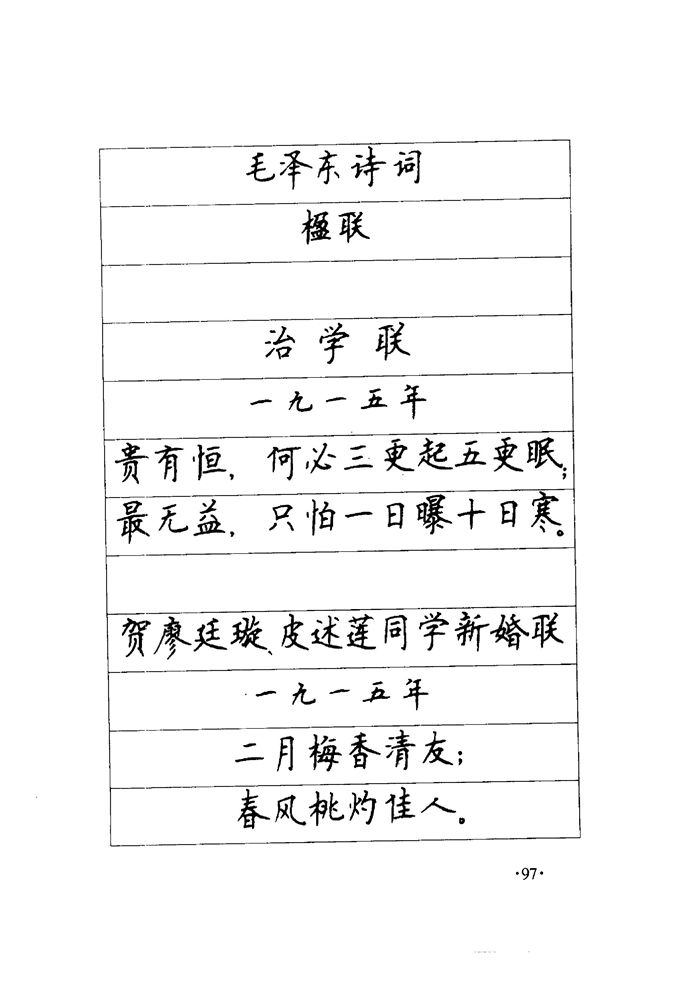 毛泽东诗词
楹联
治学联
一九一五年
贵有恒，何必三更起五更眠；
最无益，只怕一日曝十日寒。
贺廖廷璇、皮述莲同学新婚联
一九一五年
二月梅香清友；
春风桃灼佳人。
·97·